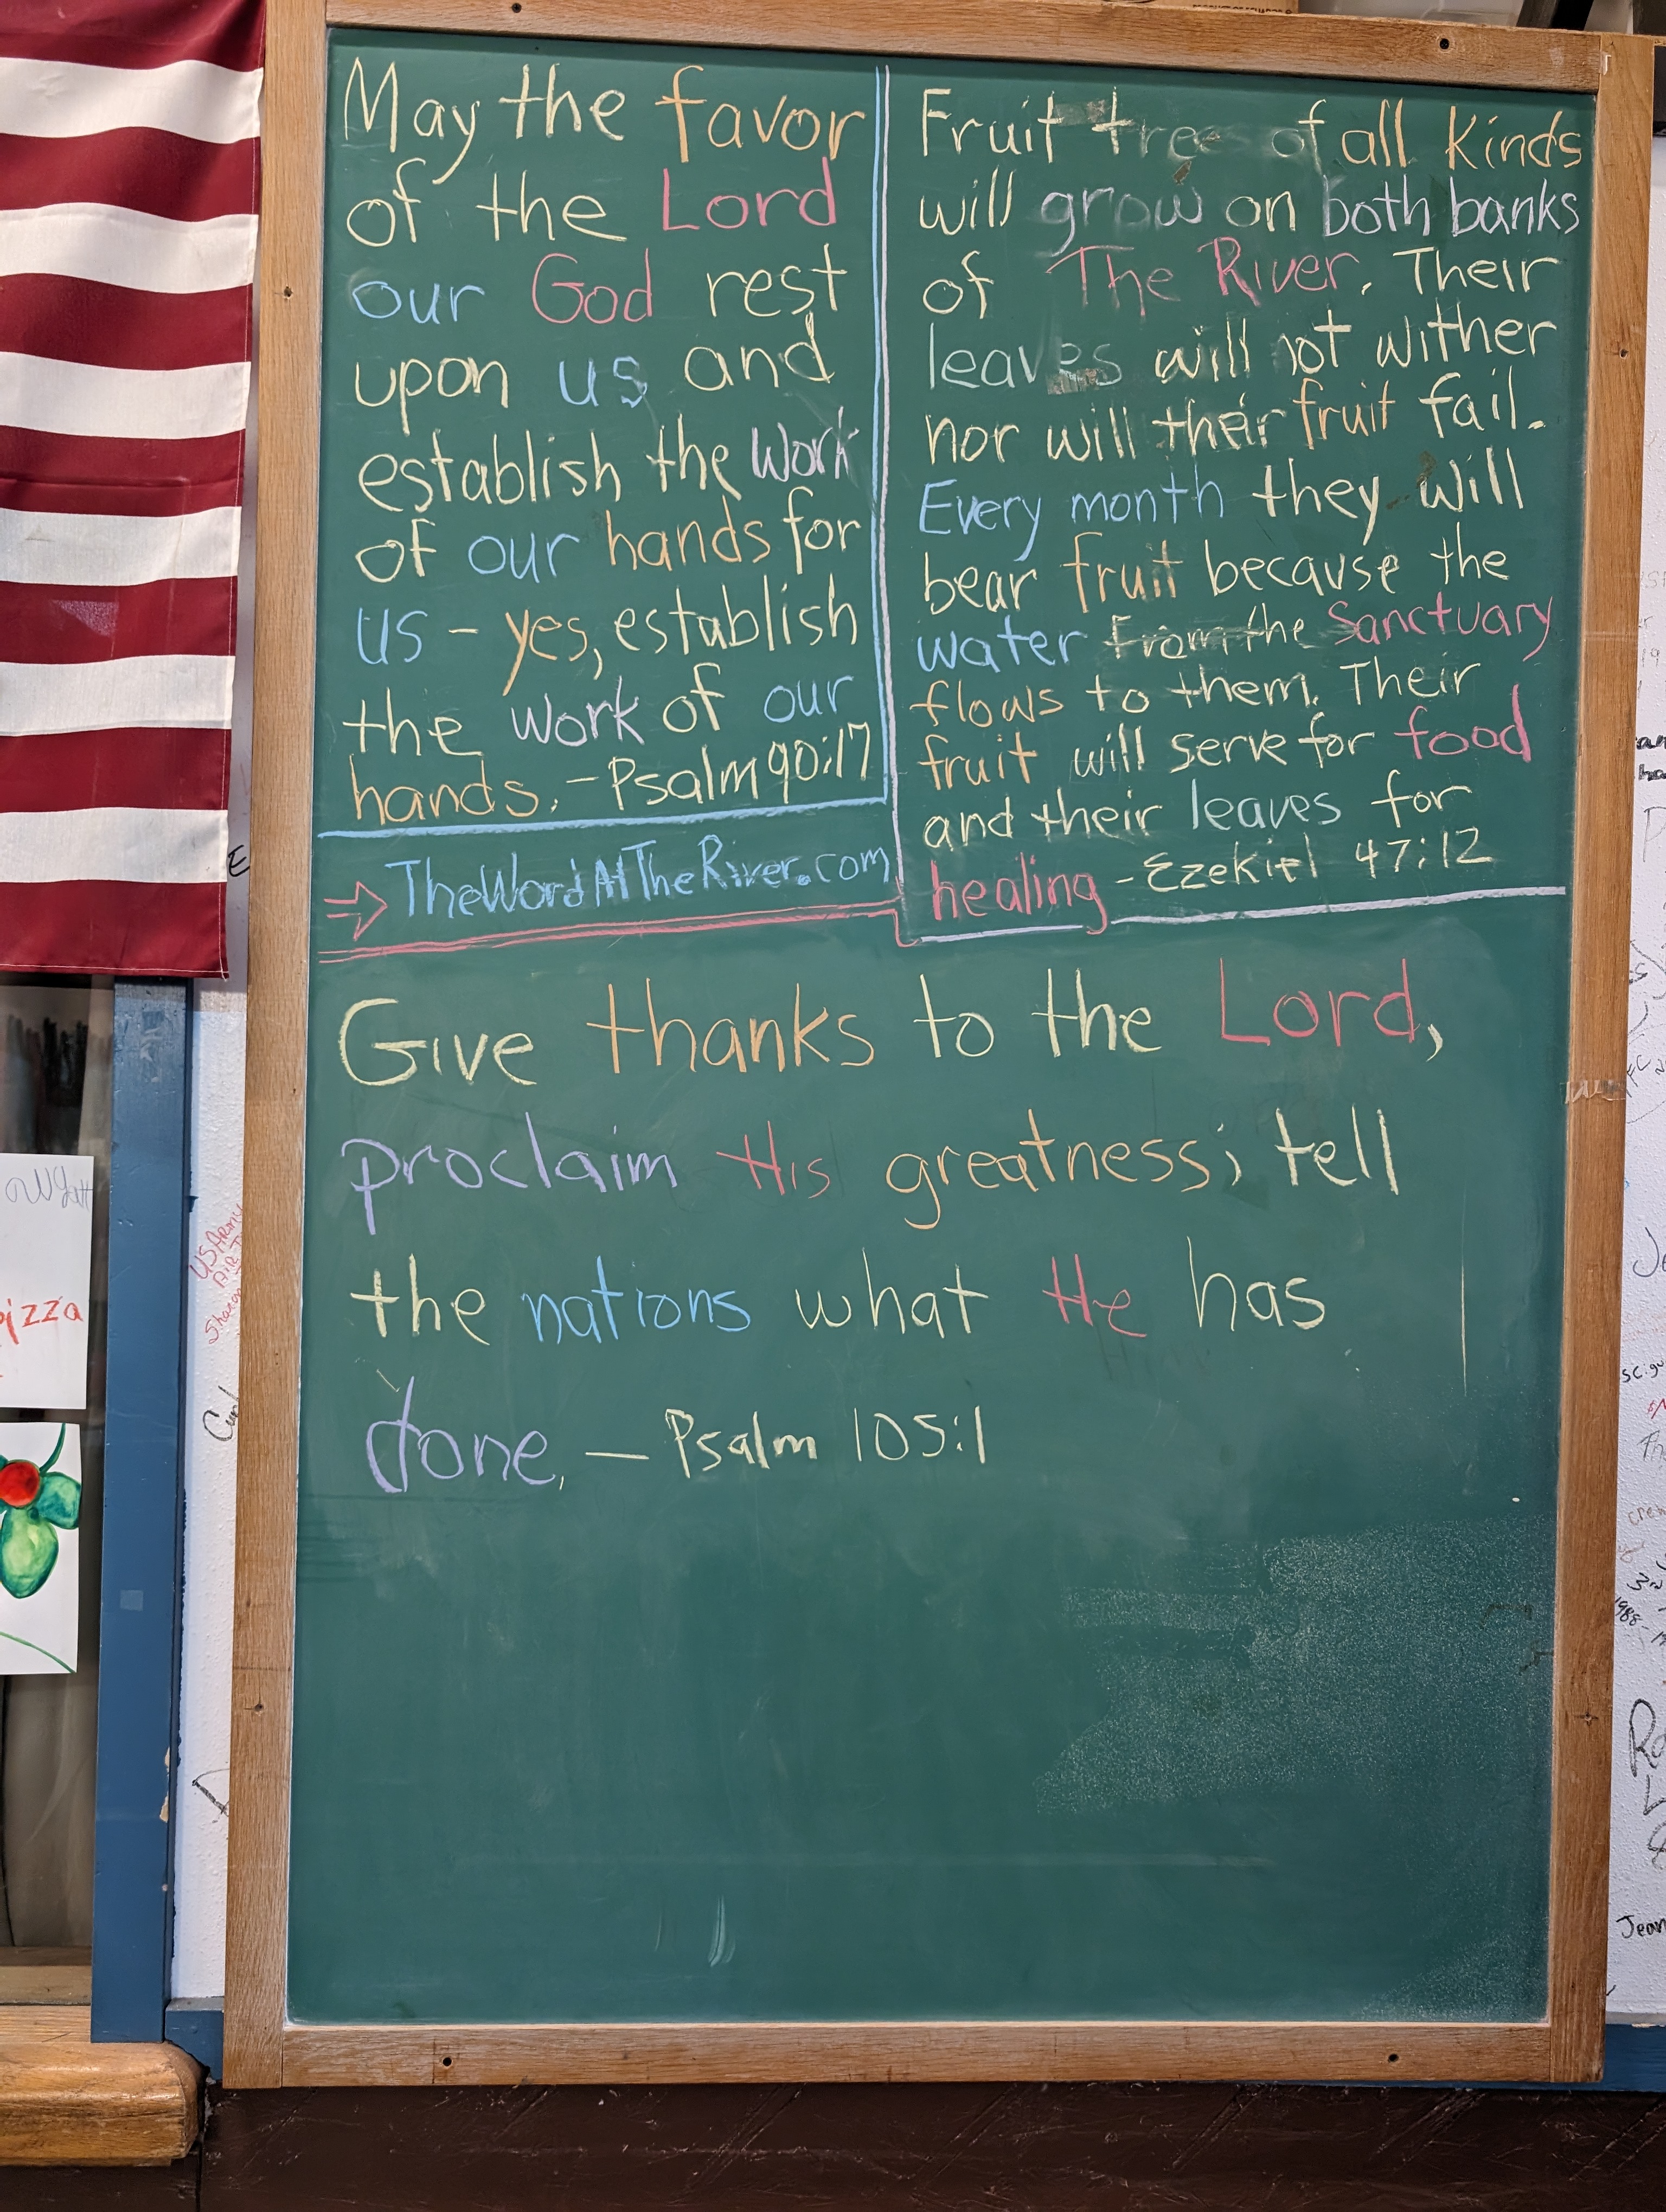 May the favor
of the Lord
our God rest
upon us and
establish the work
of our hands for
us - yes, establish
the work of our
hands. - Psalm 90:17
TheWordAtTheRiver.com
Fruit trees of all kinds
will grow on both banks
of The River. Their
leaves will not wither
nor will their fruit fail.
Every month they will
bear fruit because the
water from the Sanctuary
flows to them. Their
fruit will serve for food
and their leaves for
healing - Ezekiel 47:12
Give thanks to the Lord,
proclaim His greatness; tell
the nations what He has
done. - Psalm 105:1
US Army
pizza
1988
Jean